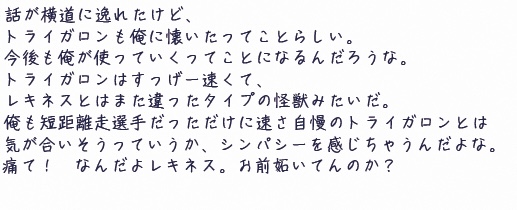 話が横道に逸れたけど、
トライガロンも俺に懐いたってことらしい。
今後も俺が使っていくってことになるんだろうな。
トライガロンはすっげー速くて、
レキネスとはまた違ったタイプの怪獣みたいだ。
俺も短距離走選手だっただけに速さ自慢のトライガロンとは
気が合いそうっていうか、シンパシーを感じちゃうんだよな。
痛て！　なんだよレキネス。お前妬いてんのか？